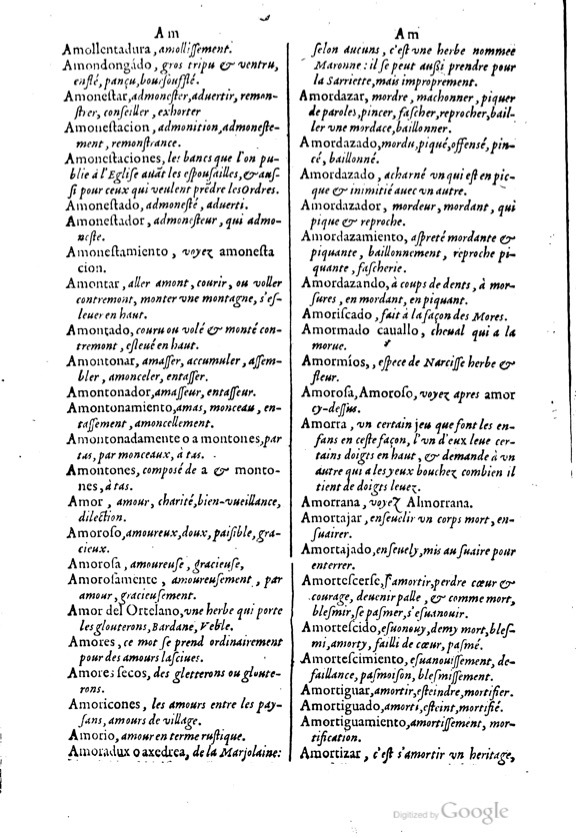 A m
Amollentadura, amollissement.
Amondongádo, gros tripu & ventru,
enflé, pançu, boursoufflé.
Amonestar, admonester, aduertir, remon-
strer, conseiller, exhorter
Amonestacion, admonition, admoneste-
ment, remonstrance.
Amonestaciones, les bancs que l'on pu-
blie à l'Eglise auãt les espousailles, & aus-
si pour ceux qui veulent prẽdre les Ordres.
Amonestado, admonesté, aduerti.
Amonestador, admonesteur, qui admo-
neste.
Amonestamiento, voyez amonesta
cion.
Amontar, aller amont, courir, ou voller
contremont, monter vne montagne, s'es-
leuer en haut.
Amontado, couru ou volé & monté con-
tremont, esleué en haut.
Amontonar, amasser, accumuler, assem-
bler, amonceler, entasser.
Amontonador, amasseur, entasseur.
Amontonamiento, amas, monceau, en-
tassement, amoncellement.
Amontonadamente o a montones, par
tas, par monceaux, à tas.
Amontones, composé de a & monto-
nes, à tas.
Amor, amour, charité, bien-vueillance,
dilection.
Amoroso, amoureux, doux, paisible, gra-
cieux.
Amorosa, amoureuse, gracieuse,
Amorosamente, amoureusement, par
amour, gracieusement.
Amor del Ortelano, vne herbe qui porte
les glouterons, Bardane, Veble.
Amores, ce mot se prend ordinairement
pour des amours lasciues.
Amores secos, des gletterons ou gloute-
rons.
Amoricones, les amours entre les pay-
sans, amours de village.
Amorio, amour en terme rustique.
Amoradux o axedrea, de la Marjolaine:
A m
selon aucuns, c'est vne herbe nommee
Maronne: il se peut aussi prendre pour
la Sarriette, mais improprement.
Amordazar, mordre, machonner, piquer
de paroles, pincer, fascher, reprocher, bail-
ler vne mordace, baillonner.
Amordazado, mordu, piqué, offensé, pin-
cé, baillonné.
Amordazado, acharné vn qui est en pic-
que & inimitié auec vn autre.
Amordazador, mordeur, mordant, qui
pique & reproche.
Amordazamiento, aspreté mordante &
piquante, baillonnement, reproche pi-
quante, fascherie.
Amordazando, à coups de dents, à mor-
sures, en mordant, en piquant.
Amoriscado, fait à la façon des Mores.
Amormado cauallo, cheual qui a la
morue.
Amormíos,, espece de Narcisse herbe &
fleur.
Amorosa, Amoroso, voyez apres amor
cy-dessus.
Amorra, vn certain jeu que font les en-
fans en ceste façon, l'vn d'eux leue cer-
tains doigts en haut, & demande à vn
autre qui a les yeux bouchez combien il
tient de doigts leuez.
Amorrana, voyez Almorrana.
Amortajar, enseuelir vn corps mort, en-
suairer.
Amortajado, enseuely, mis au suaire pour
enterrer.
Amortescerse, s'amortir, perdre cœur &
courage, deuenir palle, & comme mort,
blesmir, se pasmer, s'esuanouir.
Amortescido, esuonouy, demy mort, bles-
mi, amorty, failli de cœur, pasmé.
Amortescimiento, esuanouissement, de-
faillance, pasmoison, blesmissement.
Amortiguar, amortir, esteindre, mortifier.
Amortiguado, amorti, esteint, mortifié.
Amortiguamiento, amortissement, mor-
tification.
Amortizar, c'est s'amortir vn heritage,
Digitized by Google